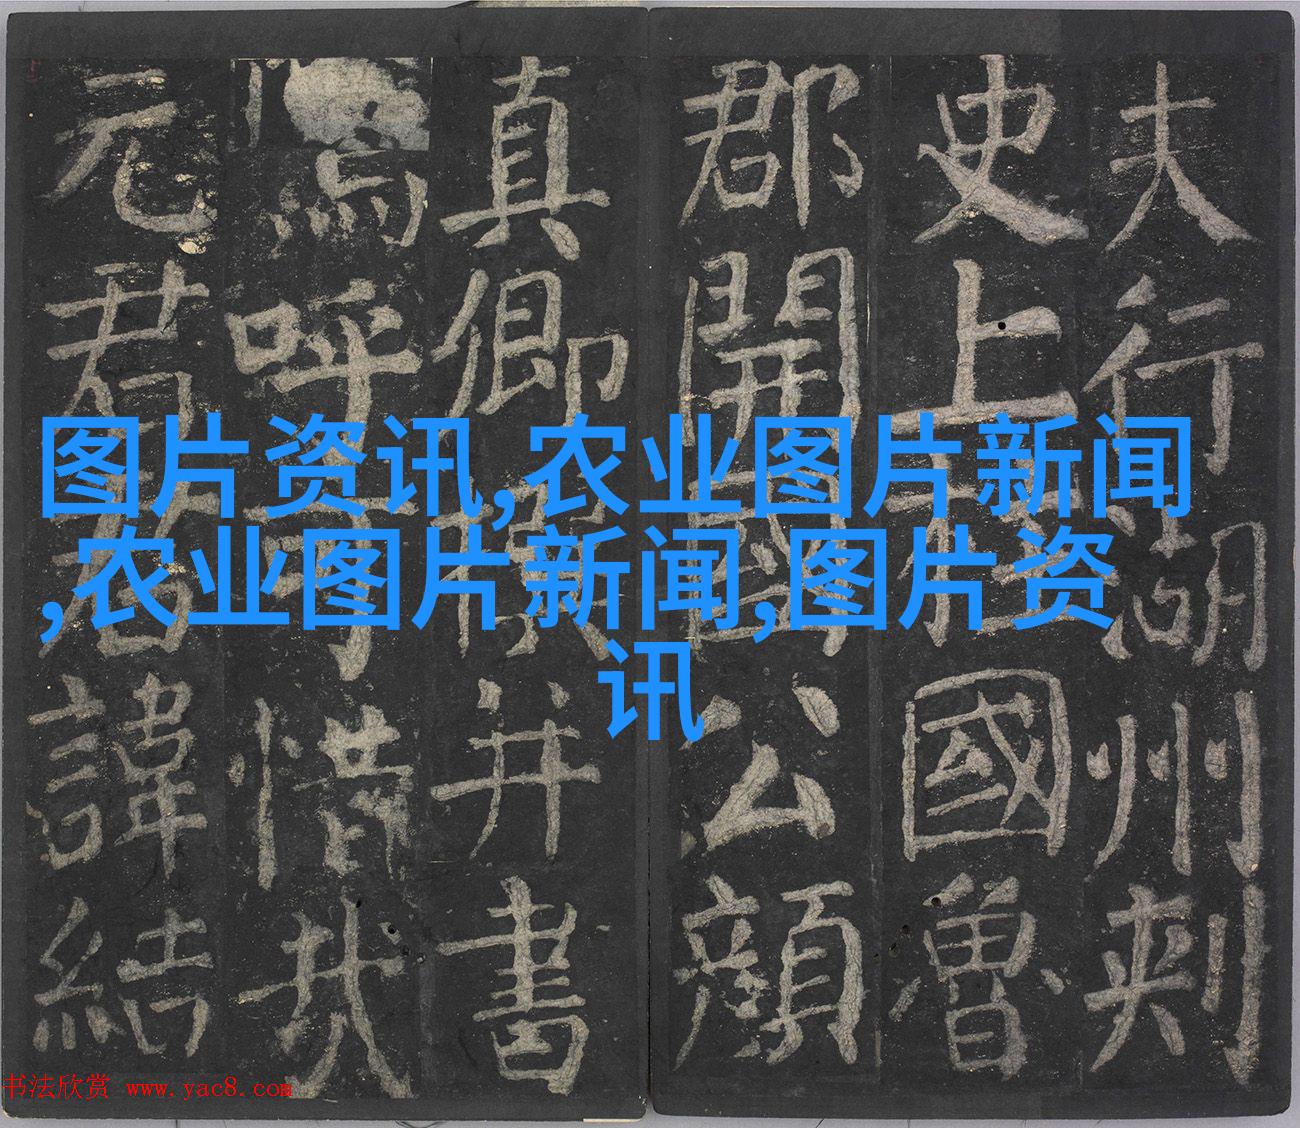 夫行湖州刺
史上柱國魯
郡開國公顏
真卿撰并書
嗚呼可惜哉
元君君諱結
图片资讯,农业图片新闻
,农业图片新闻,图片资
讯
书法欣赏 www.yac8.com